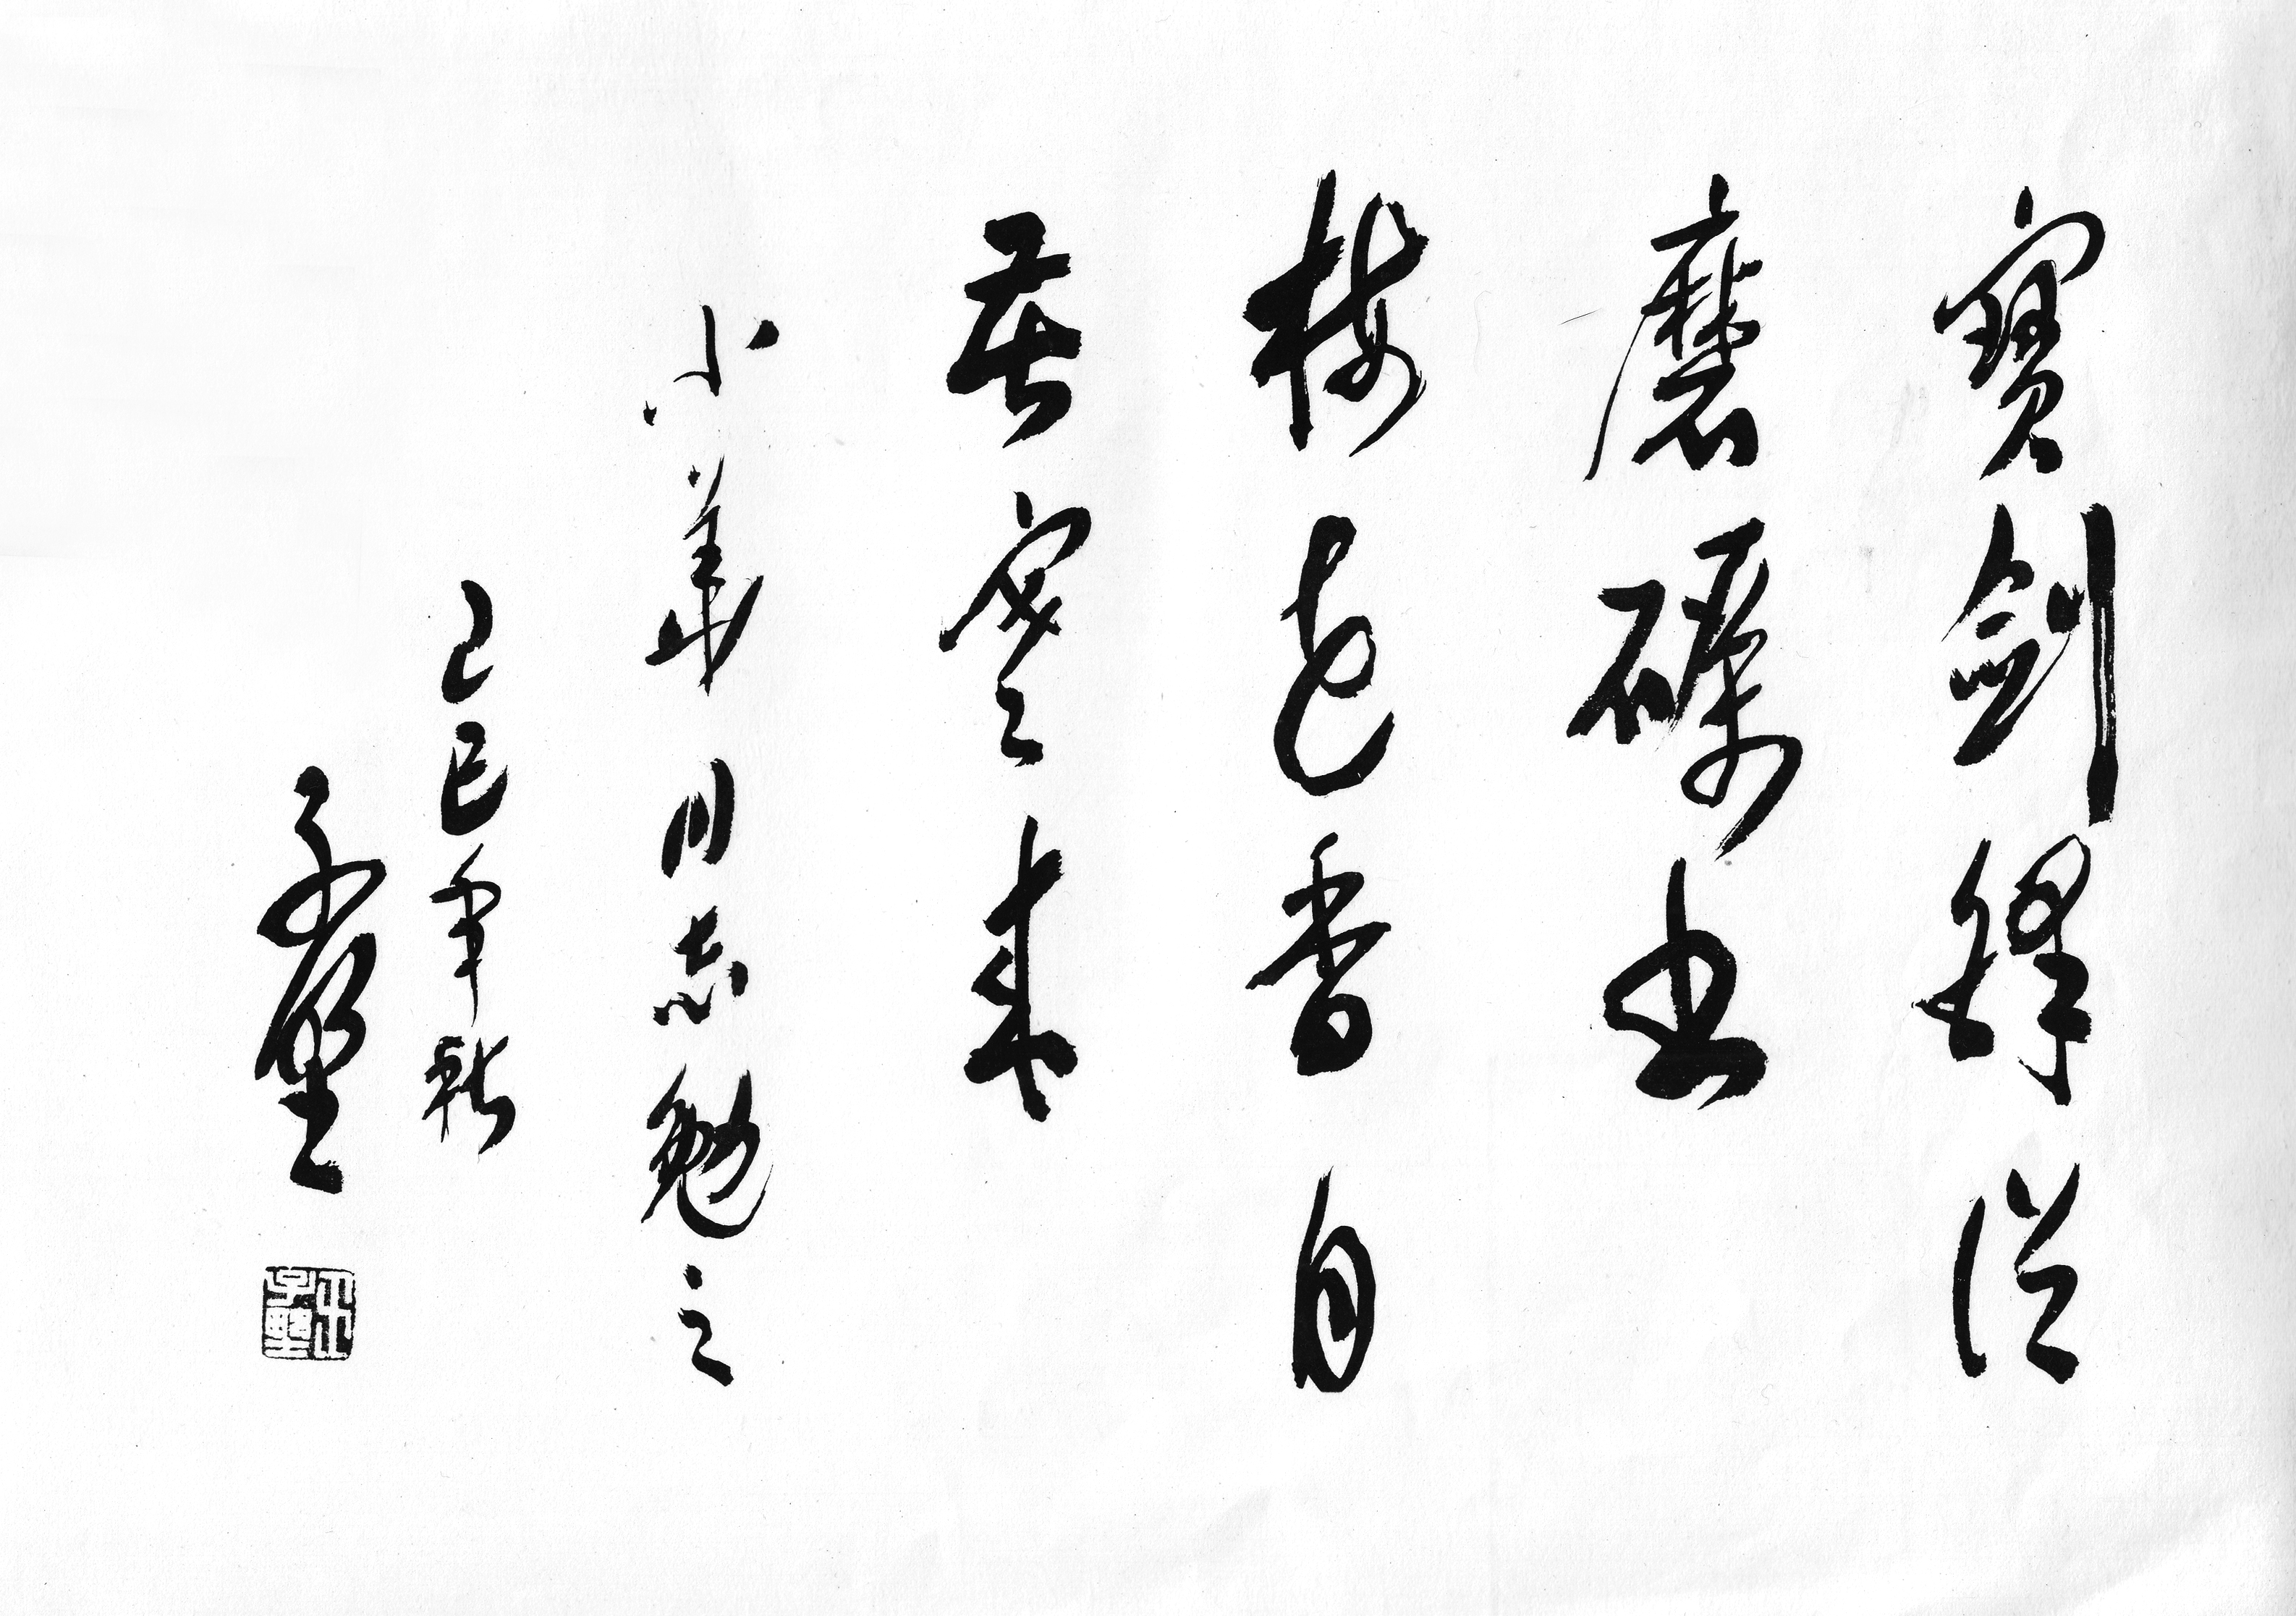 寶劍鋒從
磨礪出
梅花香自
苦寒來
小華同志勉之
己巳年秋
子